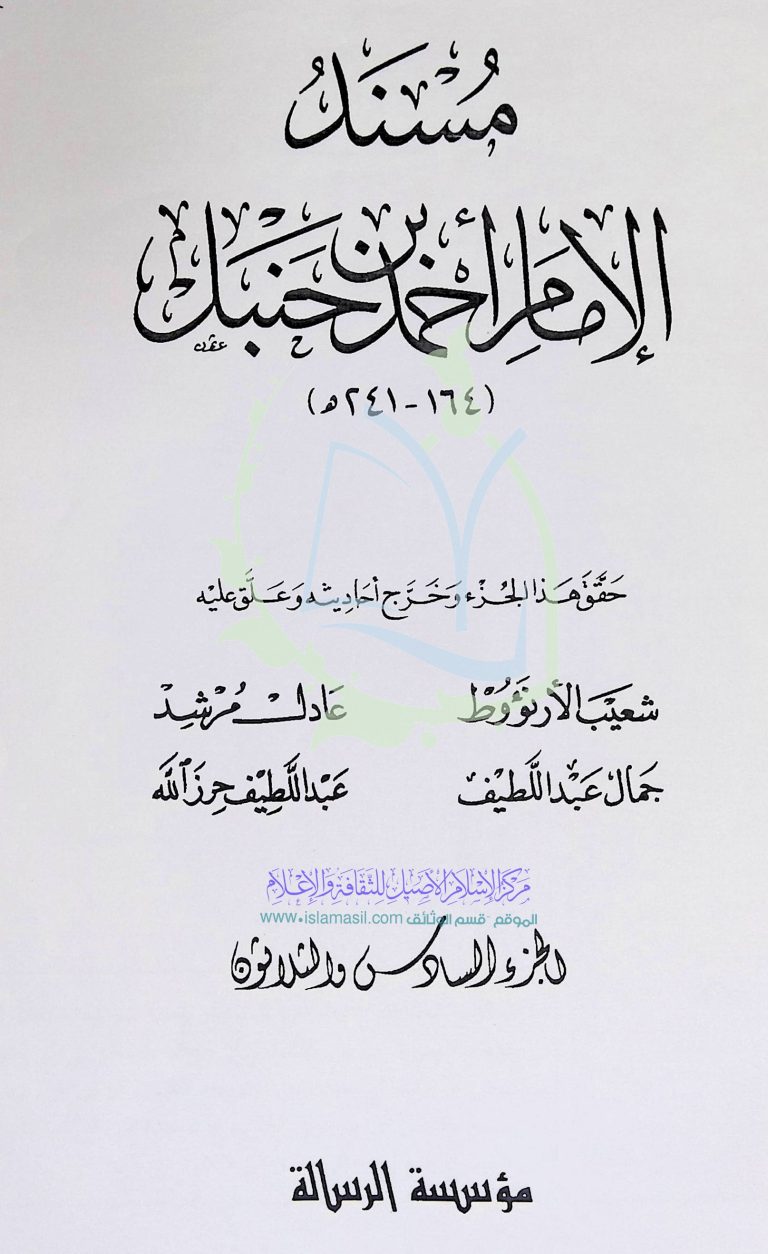 مُسْنَدُ
الإِمَامِ أَحْمَد بْن حَنْبَل
(١٦٤ - ٢٤١ هـ)
حَقَّقَ هَذَا الجُزْء وَخَرَّجَ أَحَادِيثَه وَعَلَّقَ عَلَيْه
شعَيْبُ الأرنَؤُوط عَادِل مُرْشِد
جَمَال عَبْد اللَّطِيْف عَبْد اللَّطِيْف حِرز الله
مركز الإسلام الأصيل للثقافة والإعلام
الموقع - قسم الوثائق www.islamasil.com
الجزء السادس والثلاثون
مؤسسة الرسالة